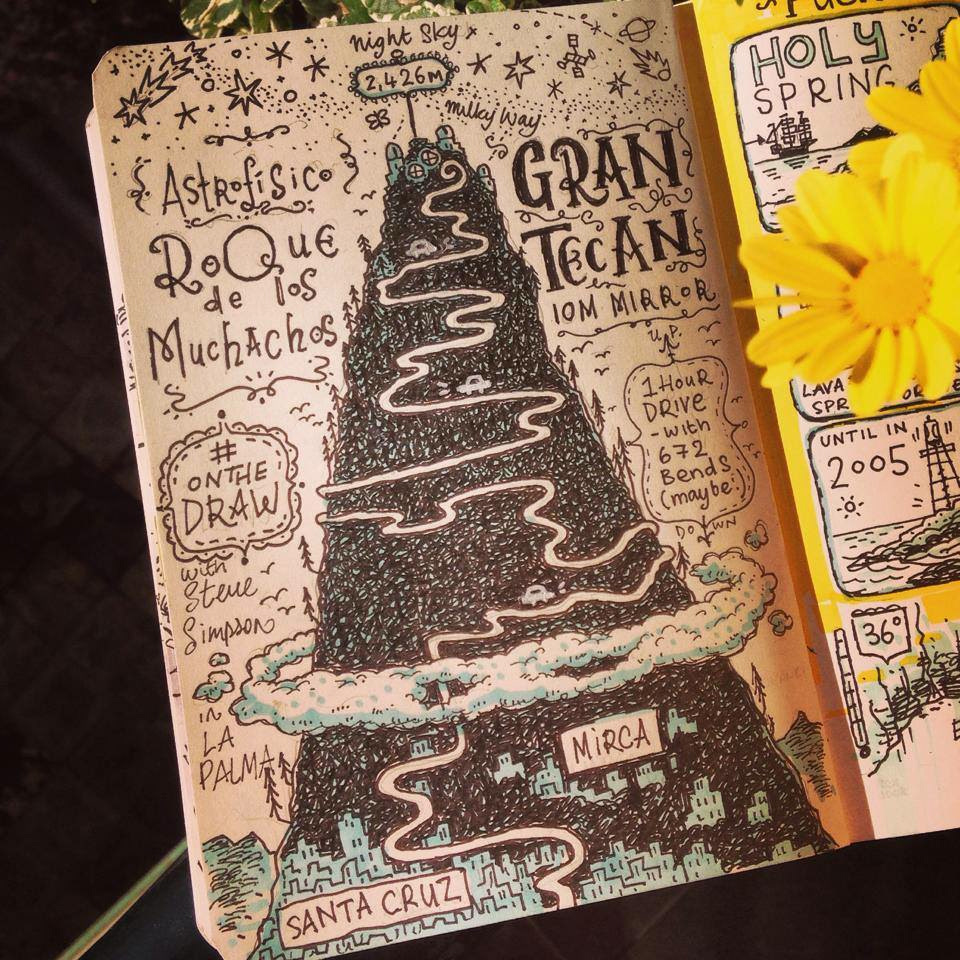 night Sky
2,426m
milky Way
Astrofísico
RoQue
de los
MuchAchos
GRAN
TECAN
10M MIRROR
UP
1 HOUR
DRiVE
- with
672
Bends
(maybe)
DOWN
#
ONTHE
DRAW
with
Steve
Simpson
iN
LA
PALMA
MiRCA
SANTA CRUZ
HOLY
SPRING
LAVA
SPR
UNTIL IN
2005
36°